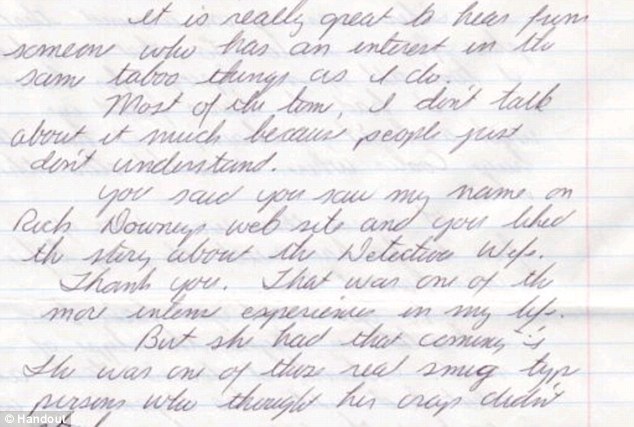 It is really great to hear from
someone who has an interest in the
same taboo things as I do.
Most of the time, I don't talk
about it much because people just
don't understand.
You said you saw my name on
Rich Downeys web site and you liked
the story about the Detectives Wife.
Thank you. That was one of the
more intense experiences in my life.
But she had that coming
She was one of those real smug type
persons who thought her crap didn't
© Handout